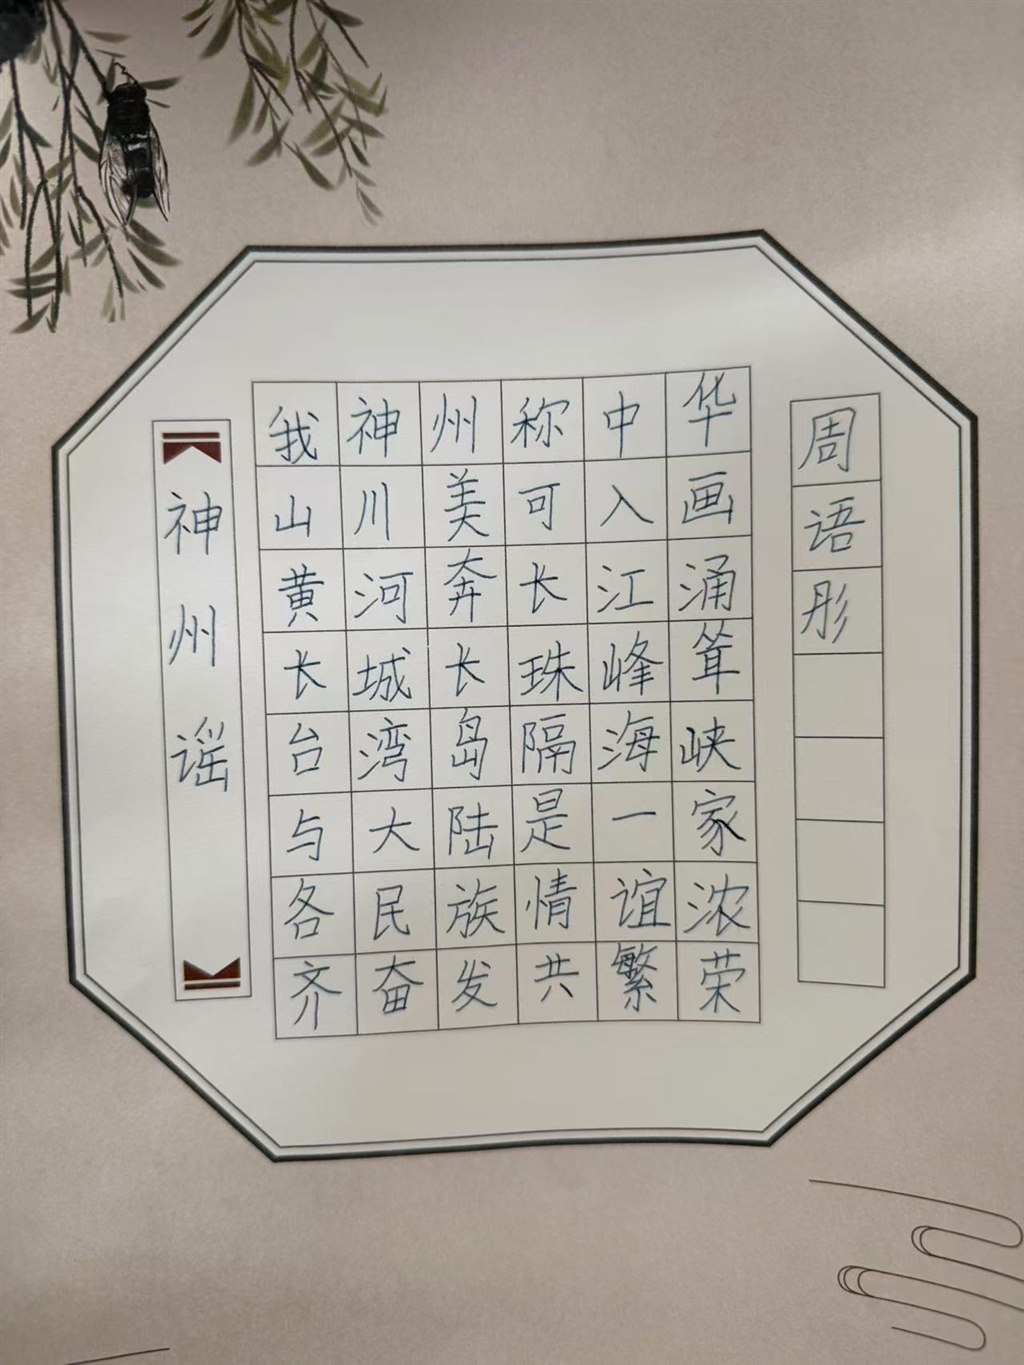 神州谣
我神州称中华
山川美可入画
黄河奔长江涌
长城长珠峰耸
台湾岛隔海峡
与大陆是一家
各民族情谊浓
齐奋发共繁荣
周语彤